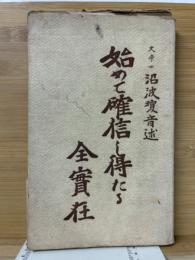 文学士 沼波瓊音述
始めて確信し得たる
全實在